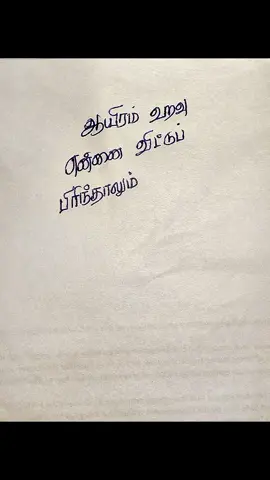 ஆயிரம் உறவு
என்னை திட்டுப்
பிரிந்தாலும்